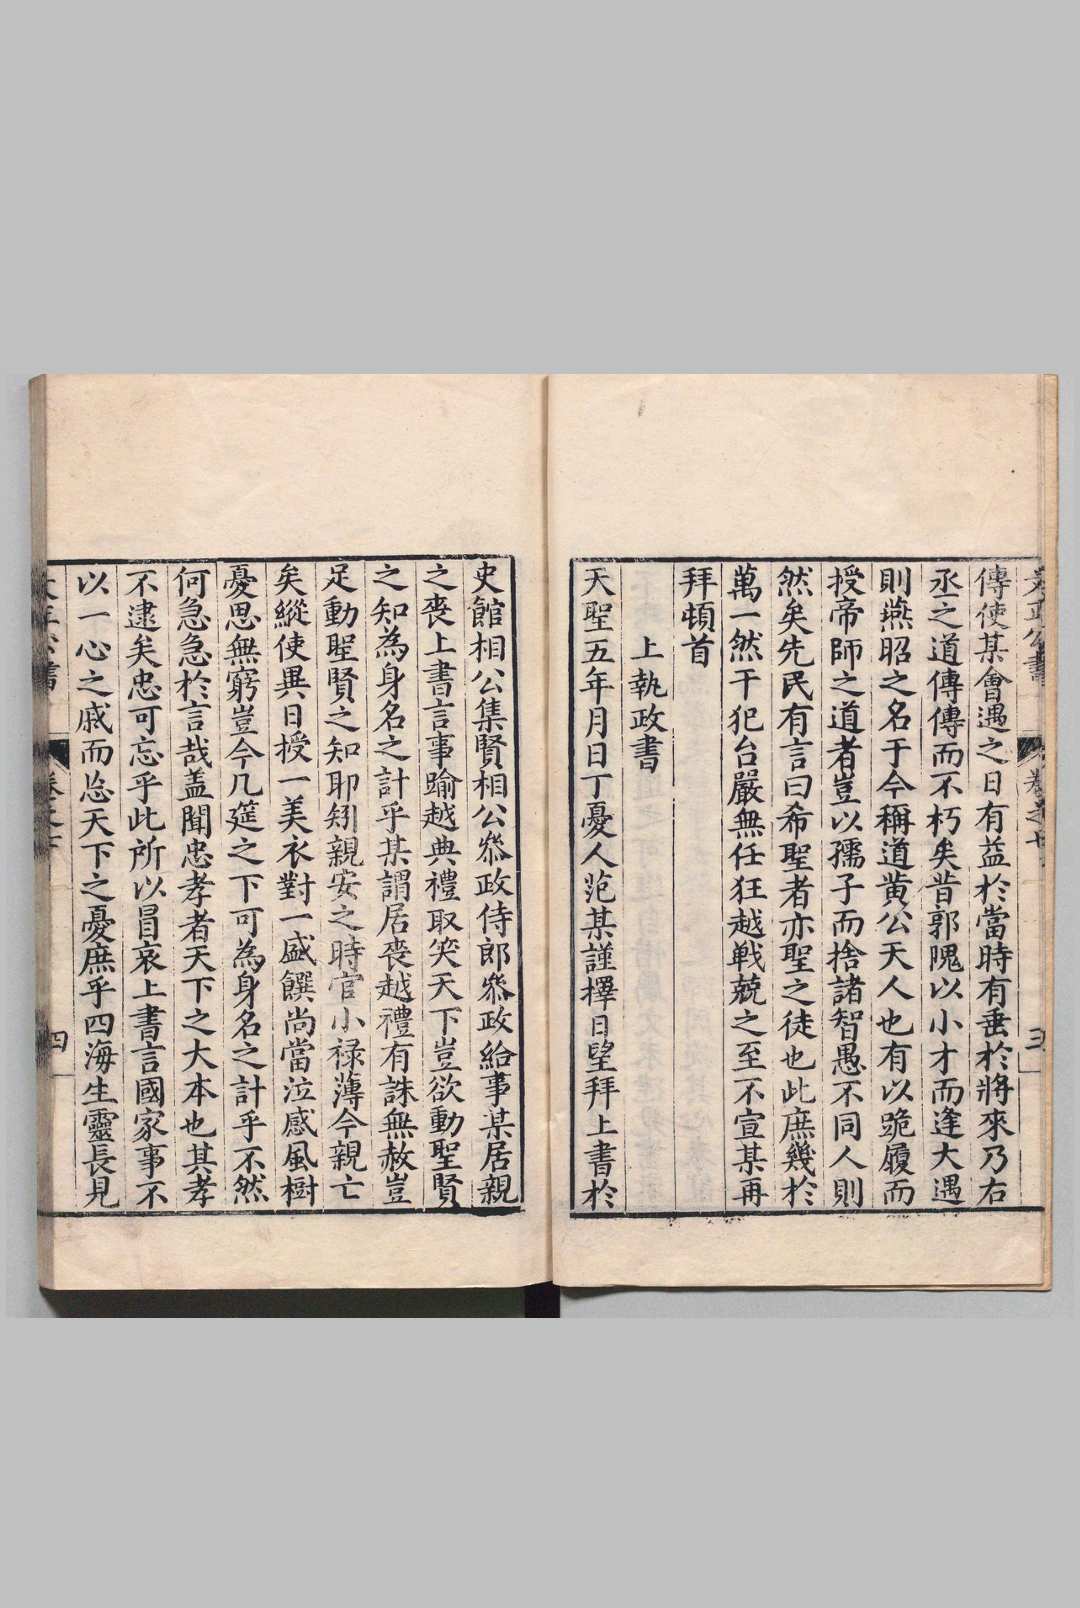 傳使某會遇之日有益於當時有垂於將來乃右
丞之道傳傳而不朽矣昔郭隗以小才而逢大遇
則燕昭之名于今稱道黄公天人也有以跪履而
授帝師之道者豈以孺子而捨諸智愚不同人則
然矣先民有言曰希聖者亦聖之徒也此庶幾於
萬一然干犯台嚴無任狂越戦兢之至不宣某再
拜頓首
上執政書
天聖五年月日丁憂人范某謹擇日望拜上書於
史館相公集賢相公叅政侍郎叅政給事某居親
之喪上書言事踰越典禮取笑天下豈欲動聖賢
之知為身名之計乎某謂居喪越禮有誅無赦豈
足動聖賢之知耶矧親安之時官小禄薄今親亡
矣縱使異日授一美衣對一盛饌尚當泣感風樹
憂思無窮豈今几筵之下可為身名之計乎不然
何急急於言哉盖聞忠孝者天下之大本也其孝
不逮矣忠可忘乎此所以冒哀上書言國家事不
以一心之戚而忘天下之憂庶乎四海生靈長見
四